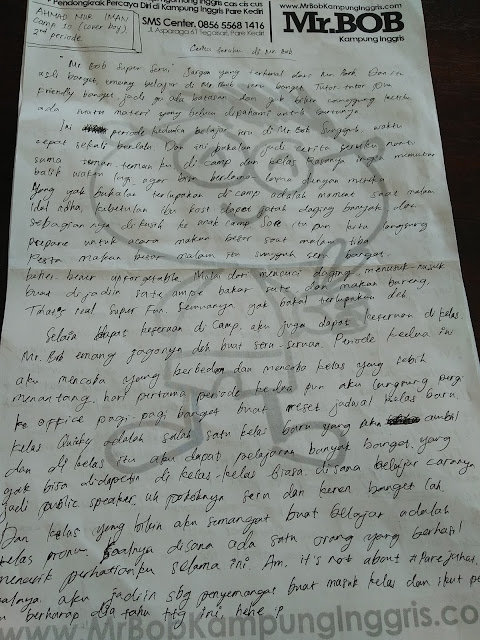 Pendongkrak Percaya Diri di Kampung Inggris Pare Kediri
SMS Center. 0856 5568 1416
Jl. Asparaga 61 Tegalsari, Pare Kediri
www.MrBobKampungInggris.com
Mr.BOB
Kampung Inggris
AHMAD NUR IMAN
Camp 10 (Lover boy)
2nd periode
Cerita Seruku di Mr. Bob
"Mr Bob Super Seru" Jargon yang terkenal dari Mr. Bob. Dan itu
asli banget emang belajar di Mr. Bob seru banget. Tutor-tutor nya
friendly banget jadi ga ada batasan dan gak bikin canggung ketika
ada suatu materi yang belum dipahami untuk bertanya.
Ini periode keduaku belajar seru di Mr. Bob. Sungguh, waktu
cepat sekali berlalu. Dan ini bakalan jadi cerita seruku nanti
sama teman-temanku di camp dan kelas. Rasanya ingin memutar
balik waktu lagi, agar bisa berlama-lama dengan mereka.
Yang gak bakalan terlupakan di camp adalah momenz saat malam
idul adha, kebetulan ibu kost dapat jatah daging banyak dan
sebagian nya di kasih ke anak camp. Sore itu pun kita langsung
prepare untuk acara makan besar saat malam tiba.
Pesta makan besar malam itu sungguh seru banget.
bener-bener unforgetable. Mulai dari mencuci daging, menusuk-nusuk
buat di jadiin sate ampe bakar sate dan makan bareng.
That's real super fun. Semuanya gak bakal terlupakan deh
Selain dapat keseruan di camp, aku juga dapat keseruan di kelas.
Mr. Bob emang jagonya deh buat seru-seruan. Periode kedua ini
aku mencoba yang berbeda dan mencoba kelas yang lebih
menantang. hari pertama periode kedua pun aku langsung pergi
ke office pagi-pagi banget buat reset jadwal kelas baru.
Kelas Quicky adalah salah satu kelas baru yang aku ambil
dan di kelas itu aku dapat pelajaran banyak banget yang
gak bisa didapetin di kelas-kelas biasa. disana belajar caranya
jadi public speaker. uh pokoknya seru dan keren banget lah.
Dan kelas yang bikin aku semangat buat belajar adalah
kelas pronun. Soalnya disana ada satu orang yang berhasil
menarik perhatianku selama ini. Am, it's not about #Parejathat.
soalnya, aku jadiin sbg penyemangat buat masuk kelas dan ikut
berharap dia tahu ttg ini, hehe :p
www.MrBobKampungInggris.co